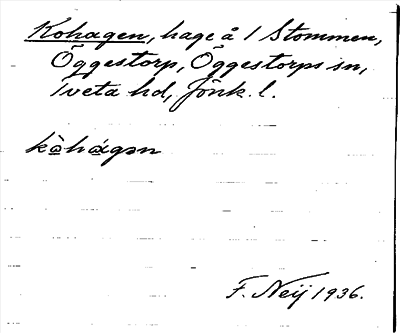 Kohagen, hage å 1 Stommen,
Öggestorp, Öggestorps sn,
Tveta hd, Jönk. l.
kòhágən
F. Neij 1936.